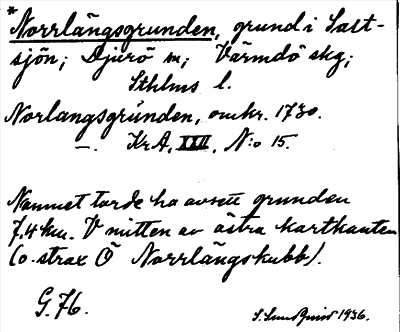 * Norrlångsgrunden, grund i Salt-
sjön; Djurö sn; Värmdö skg;
Sthlms l.
Norlangsgrúnden, omkr. 1730.
—. KrA, XXII, N:o 15.
Namnet torde ha avsett grunden
7,4 km. V mitten av östra kartkanten
(o. strax Ö Norrlångskubb).
G. 76.
S. Sundquist 1936.